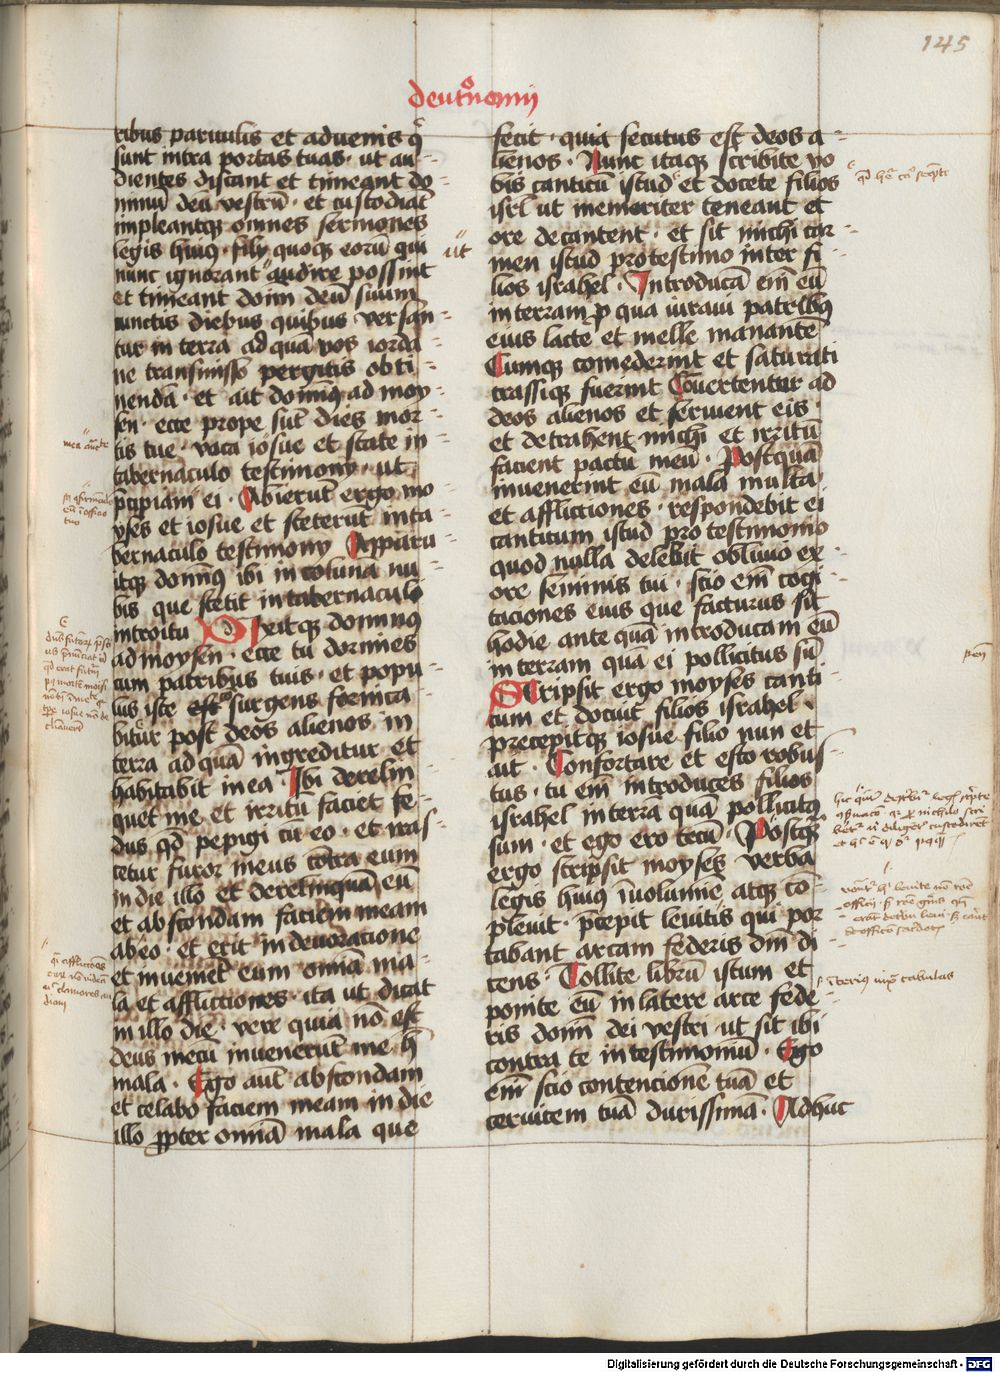 145
deutronomii
ribus parvulis et advenis q̄
sunt intra portas tuas · ut au-
dientes discant et timeant do-
minū deū vestrū · et custodiāt
impleantq̄ omnes sermones
legis huiꝰ · filii quoq̄ eorū qui
nunc ignorant ut audire possint
et timeant dom̄ deū suum
cunctis diebus quibus versan-
tur in terra ad quā vos iorda-
ne transmisso pergitis obti-
nendā · et ait domīꝰ ad moy-
sen · ecce prope sūt dies mor-
tis tue · voca iosue et state in
tabernaculo testimony · ut
p̄cipiam ei · Abierūt ergo mo-
yses et iosue et steterūt in ta-
bernaculo testimony Apparu-
itq̄ domīꝰ ibi in colūna nu-
bis que stetit in tabernaculo
introitu Dixitq̄ dominꝰ
ad moysen · ecce tu dormies
cum patribus tuis · et popu-
lus iste surgens fornica-
bitur post deos alienos in
terra ad quā ingreditur et
habitabit in ea · Ibi derelin-
quet me et irritū faciet fe-
dus qd̄ pepigi cū eo · et iras-
cetur furor meus cōtra eum
in die illo et derelinquā eū
et abscondam faciem meam
ab eo · et erit in devoratione
et invenient eum omīa ma-
la et afflictiones · ita ut dicat
in illo die · vere quia nō est
deus mecū invenerūt me h̄
mala · Ego aūt abscondam
et celabo faciem meam in die
illo ꝓpter omīa mala que
fecit · quia secutus est deos a-
lienos · Nunc itaq̄ scribite vo-
bis canticū istud et docete filios
isrl̄ ut memoriter teneant et
ore decantent · et sit michi car-
men istud pro testīmo inter fi-
lios israhel · Introducā em̄ eū
in terram ꝓ qua iuravi patribꝰ
eius lacte et melle manantē
Cumq̄ comederint et saturati
crassiq̄ fuerint Cōvertentur ad
deos alienos et servient eis ·
et detrahent michi et irritū
facient pactū meū · Postquā
invenerint eū mala multa
et afflictiones · respondebit ei
canticum istud pro testimonio
quod nulla delebit oblivio ex
ore seminis tui · scio em̄ cogi-
taciones eius que facturus sit
hodie ante quā introducam eū
in terram quā ei pollicitus sū
Scripsit ergo moyses canti-
cum et docuit filios israhel ·
precepitq̄ iosue filio nun et
ait · Confortare et esto robus-
tus · tu em̄ introduces filios
israhel in terra quā pollicitꝰ
sum · et ego ero tecū · Postq̄
ergo scripsit moyses verba
legis huiꝰ ī volumīe atq̄ cō-
plevit · p̄cepit levitis qui por-
tabant arcam federis dn̄i di-
cens · Tollite librū istum et
ponite eū in latere arce fede-
ris domī dei vestri ut sit ibi
contra te in testimoniū · Ego
em̄ scio contencionē tuā et
cervicem tuā durissimā · Adhuc
Digitalisierung gefördert durch die Deutsche Forschungsgemeinschaft - DFG